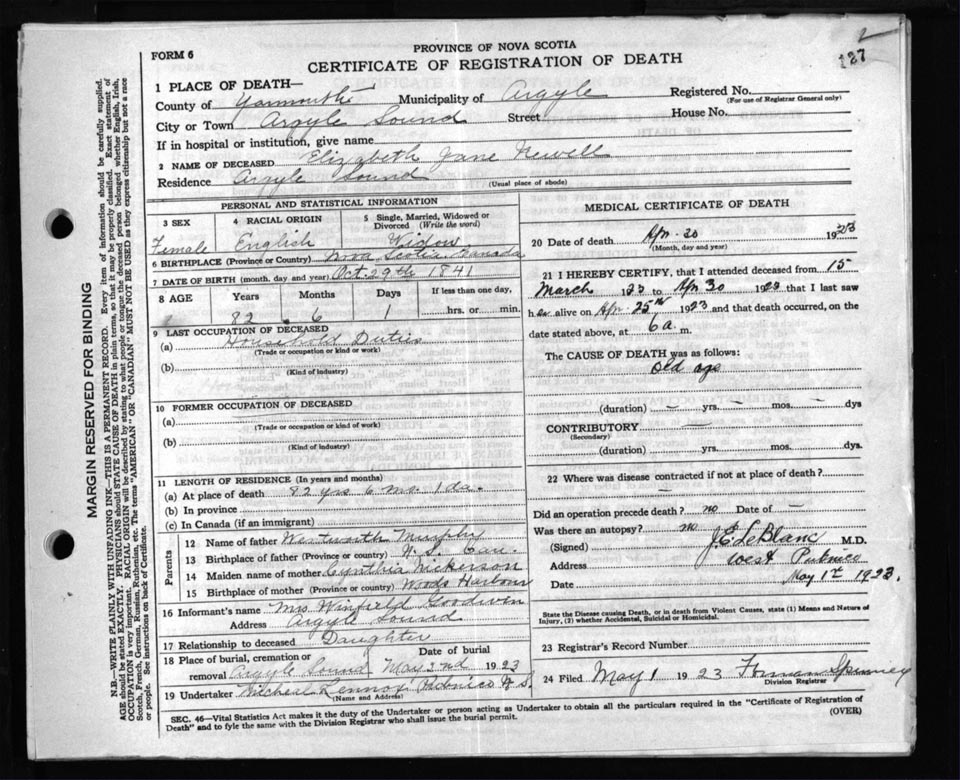 2
187
FORM 6
PROVINCE OF NOVA SCOTIA
CERTIFICATE OF REGISTRATION OF DEATH
1 PLACE OF DEATH—
County of Yarmouth Municipality of Argyle Registered No.
(For use of Registrar General only)
City or Town Argyle Sound Street House No.
If in hospital or institution, give name
2 NAME OF DECEASED Elizabeth Jane Newell
Residence Argyle Sound
(Usual place of abode)
PERSONAL AND STATISTICAL INFORMATION
3 SEX 4 RACIAL ORIGIN 5 Single, Married, Widowed or Divorced (Write the word)
Female English Widow
6 BIRTHPLACE (Province or Country) Nova Scotia Canada
7 DATE OF BIRTH (month, day and year) Oct. 29th 1841
8 AGE Years Months Days If less than one day,
82 6 1 hrs. or min.
9 LAST OCCUPATION OF DECEASED
(a) Household Duties
(Trade or occupation or kind or work)
(b)
(Kind of industry)
10 FORMER OCCUPATION OF DECEASED
(a)
(Trade or occupation or kind or work)
(b)
(Kind of industry)
11 LENGTH OF RESIDENCE (In years and months)
(a) At place of death 82 yrs 6 mo. 1 da.
(b) In province
(c) In Canada (if an immigrant)
Parents
12 Name of father Wentworth Murphy
13 Birthplace of father (Province or country) N.S. Can.
14 Maiden name of mother Cynthia Nickerson
15 Birthplace of mother (Province or country) Woods Harbour
16 Informant's name Mrs Winfield Goodwin
Address Argyle Sound
17 Relationship to deceased Daughter
18 Place of burial, cremation or removal Argyle Sound Date of burial May 2nd 1923
19 Undertaker Micheal Lennox Pubnico N.S.
(Name and Address)
MEDICAL CERTIFICATE OF DEATH
20 Date of death Apr. 30 1923
(Month, day and year)
21 I HEREBY CERTIFY, that I attended deceased from 15
March 1923 to Apr 30 1923 that I last saw
h er alive on Apr 25th 1923 and that death occurred, on the
date stated above, at 6 a m.
The CAUSE OF DEATH was as follows:
Old age
(duration) — yrs. — mos. — dys
CONTRIBUTORY —
(Secondary)
(duration) yrs. mos. dys.
22 Where was disease contracted if not at place of death?
—
Did an operation precede death? no Date of —
Was there an autopsy? no
(Signed) J.E. LeBlanc M.D.
Address West Pubnico
Date May 1st 1923.
State the Disease causing Death, or in death from Violent Causes, state (1) Means and Nature of
Injury, (2) whether Accidental, Suicidal or Homicidal.
23 Registrar's Record Number
24 Filed May 1 1923 Spinney
Division Registrar
SEC. 46—Vital Statistics Act makes it the duty of the Undertaker or person acting as Undertaker to obtain all the particulars required in the "Certificate of Registration of
Death" and to fyle the same with the Division Registrar who shall issue the burial permit.
(OVER)
MARGIN RESERVED FOR BINDING
N.B.—WRITE PLAINLY WITH UNFADING INK—THIS IS A PERMANENT RECORD. Every item of information should be carefully supplied.
AGE should be stated EXACTLY. PHYSICIANS should STATE CAUSE OF DEATH in plain terms, so that it may be properly classified. Exact statement of
OCCUPATION is very important. RACIAL ORIGIN will be described by stating to what people or tongue the deceased person belonged whether English, Irish,
Scotch, French, German, Russian, Ruthenian, etc. The terms "AMERICAN" OR "CANADIAN" MUST NOT BE USED as they express citizenship but not a race
or people. See instructions on back of Certificate.